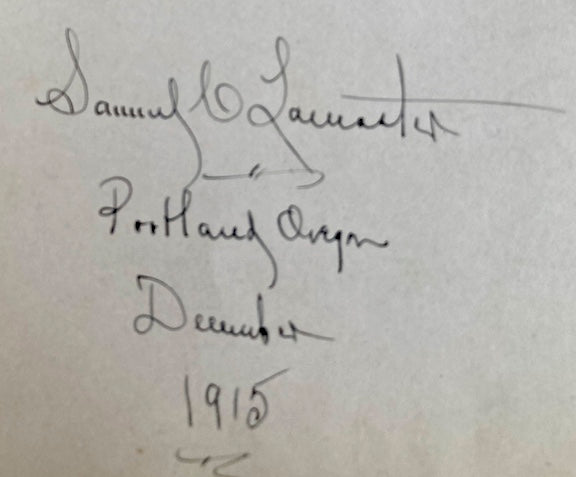 Samuel C Lancaster
Portland Oregon
December
1915